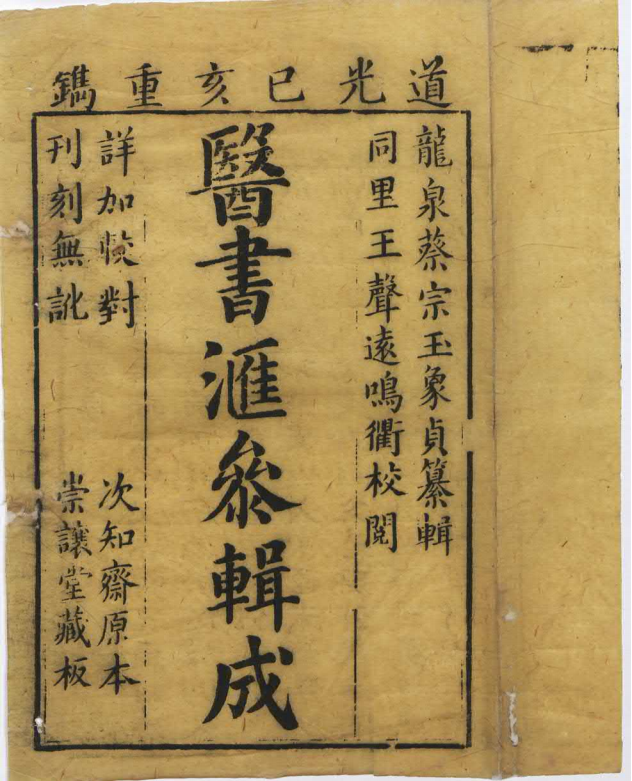 道光已亥重鐫
龍泉蔡宗玉象貞纂輯
同里王聲遠鳴衢校閱
醫書滙叅輯成
詳加悛對
刊刻無訛
次知齋原本
崇讓堂藏板